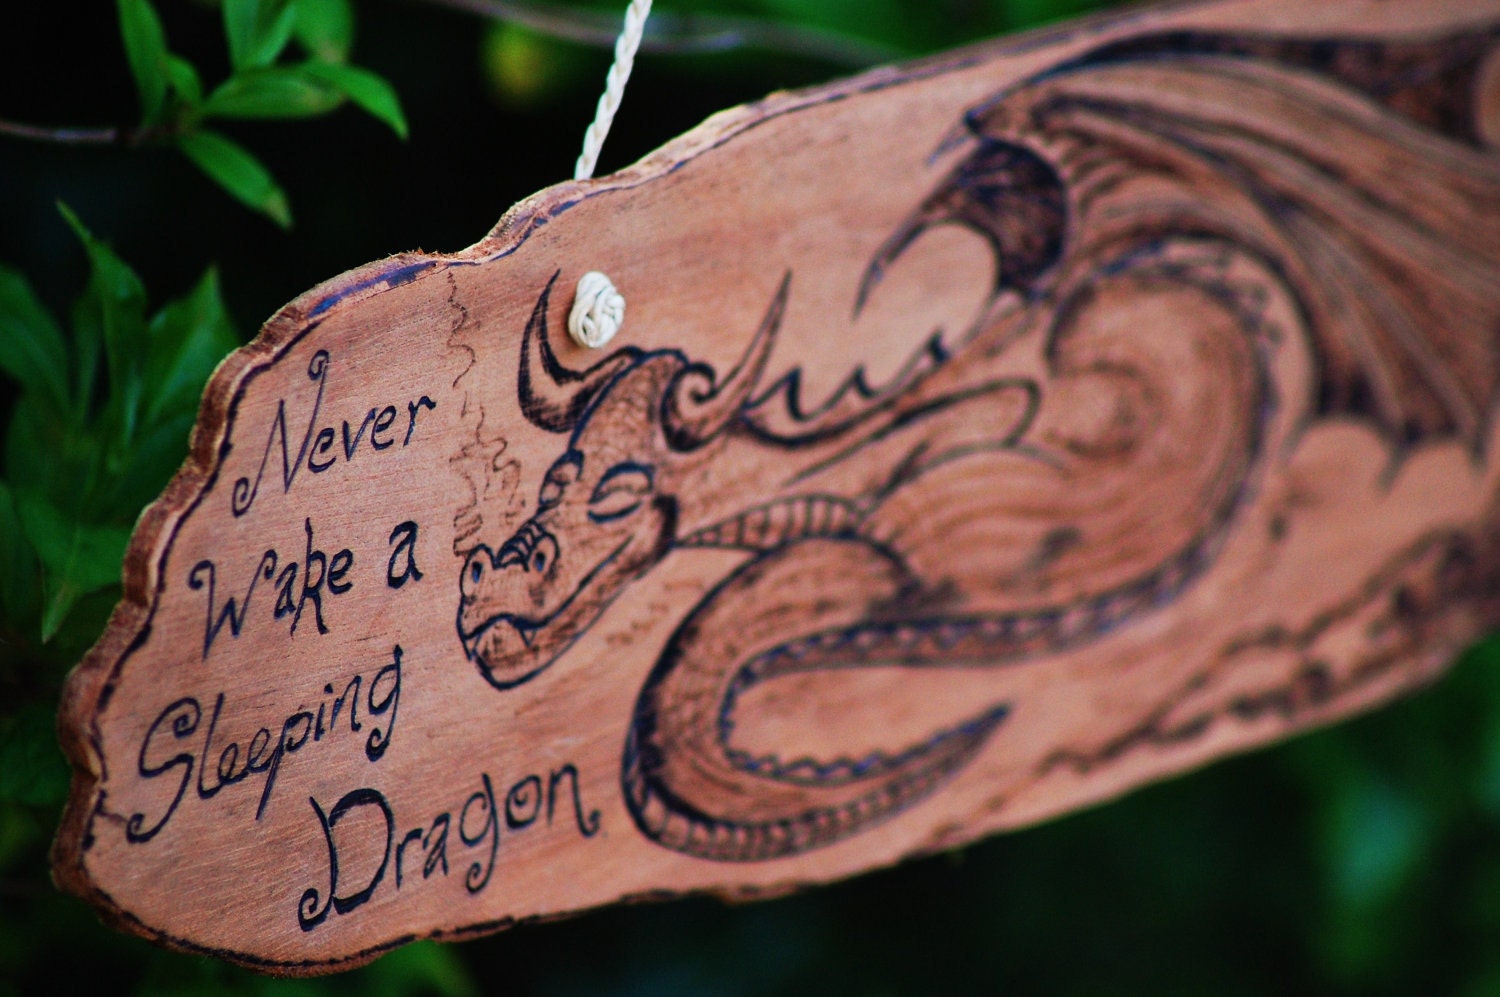 Never
Wake a
Sleeping
Dragon